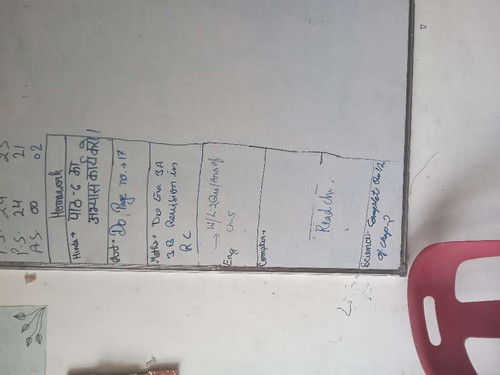 P.S. 24 21
A.S. 00 02
Homework
Hindi→ पाठ-6 का
अभ्यास कार्य करो।
Do Page no.→17
Maths→ Do Ex 3A
3B Revision in
RC
→ W/L-2 Qu/Ans of
Eng Ch-5
Computer→
Read Ch
Science→ Complete Qu/
of Chap→